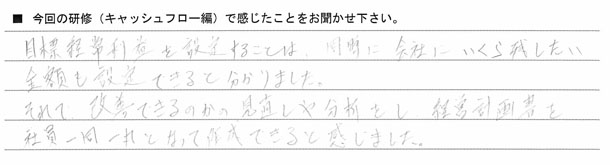 ■ 今回の研修（キャッシュフロー編）で感じたことをお聞かせ下さい。
目標経常利益を設定することは、同時に会社にいくら残したい
金額も設定できると分かりました。
それで、改善できるのかの見直しや分析をし、経営計画書を
社員一同一丸となって作成できると感じました。